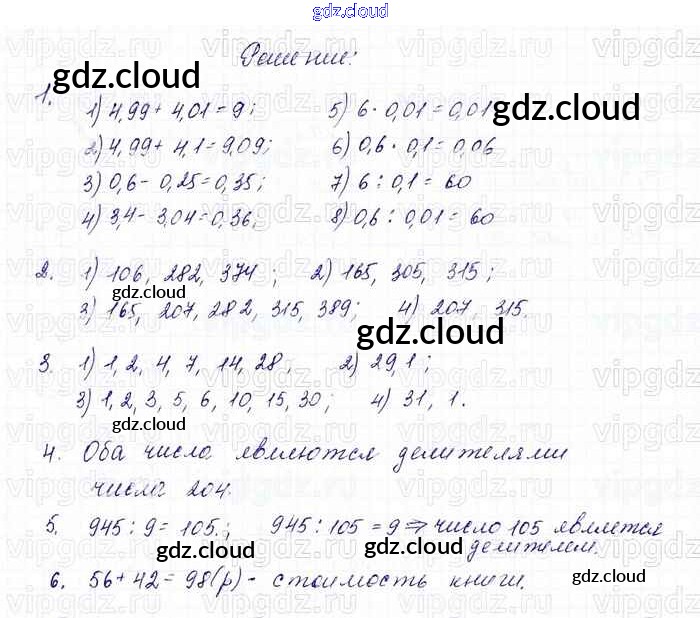 gdz.cloud
Решение:
gdz.cloud
1.
1) 4,99 + 4,01 = 9; 5) 6 · 0,01 = 0,01
gdz.cloud
2) 4,99 + 4,1 = 9,09; 6) 0,6 · 0,1 = 0,06
3) 0,6 - 0,25 = 0,35; 7) 6 : 0,1 = 60
4) 3,4 - 3,04 = 0,36; 8) 0,6 : 0,01 = 60
gdz.cloud
2. 1) 106, 282, 374; 2) 165, 305, 315;
gdz.cloud
3) 165, 207, 282, 315, 389; 4) 207, 315.
gdz.cloud
3. 1) 1, 2, 4, 7, 14, 28; 2) 29, 1;
3) 1, 2, 3, 5, 6, 10, 15, 30; 4) 31, 1.
gdz.cloud
4. Оба числа являются делителями
числа 204.
5. 945 : 9 = 105.; 945 : 105 = 9 ⇒ число 105 является
делителем.
gdz.cloud gdz.cloud
6. 56 + 42 = 98 (р) - стоимость книги.
gdz.cloud gdz.cloud